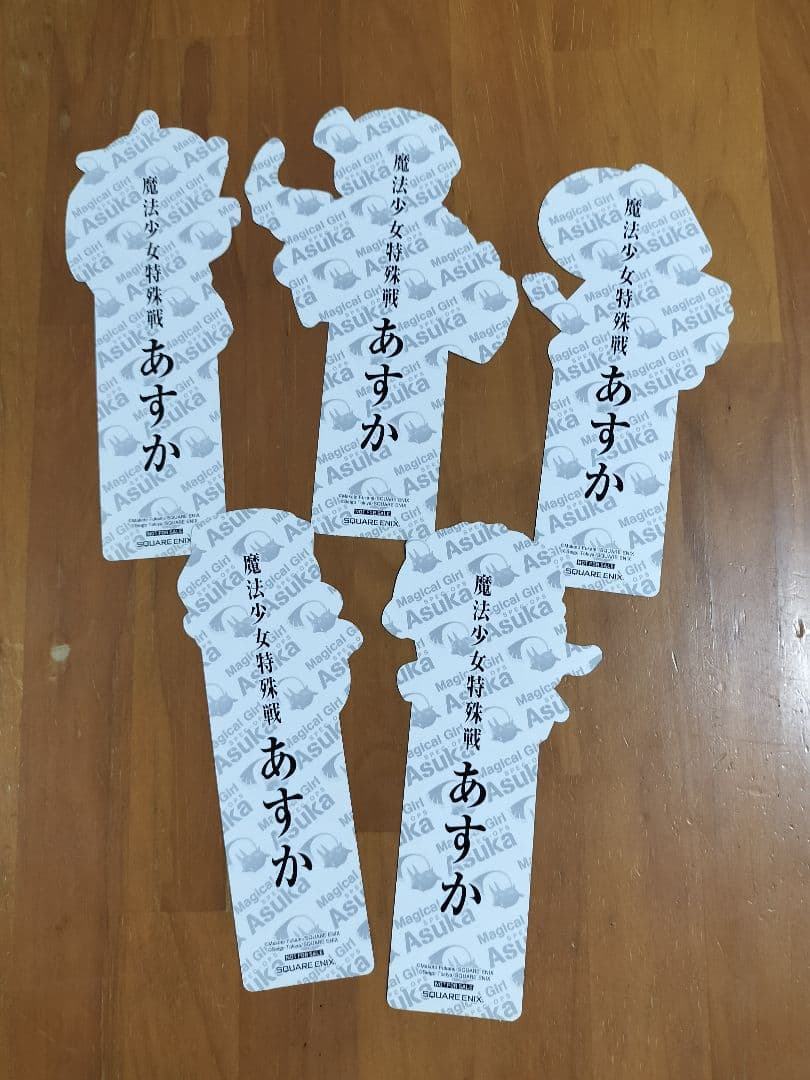 魔法少女特殊戦
あすか
©Makoto Fukami/SQUARE ENIX
©Seigo Tokiya/SQUARE ENIX
NOT FOR SALE
SQUARE ENIX
魔法少女特殊戦
あすか
©Makoto Fukami/SQUARE ENIX
©Seigo Tokiya/SQUARE ENIX
NOT FOR SALE
SQUARE ENIX
魔法少女特殊戦
あすか
©Makoto Fukami/SQUARE ENIX
©Seigo Tokiya/SQUARE ENIX
NOT FOR SALE
SQUARE ENIX
魔法少女特殊戦
あすか
©Makoto Fukami/SQUARE ENIX
©Seigo Tokiya/SQUARE ENIX
NOT FOR SALE
SQUARE ENIX.
魔法少女特殊戦
あすか
©Makoto Fukami/SQUARE ENIX
©Seigo Tokiya/SQUARE ENIX
NOT FOR SALE
SQUARE ENIX.
Magical Girl
SPEC-OPS
Asuka